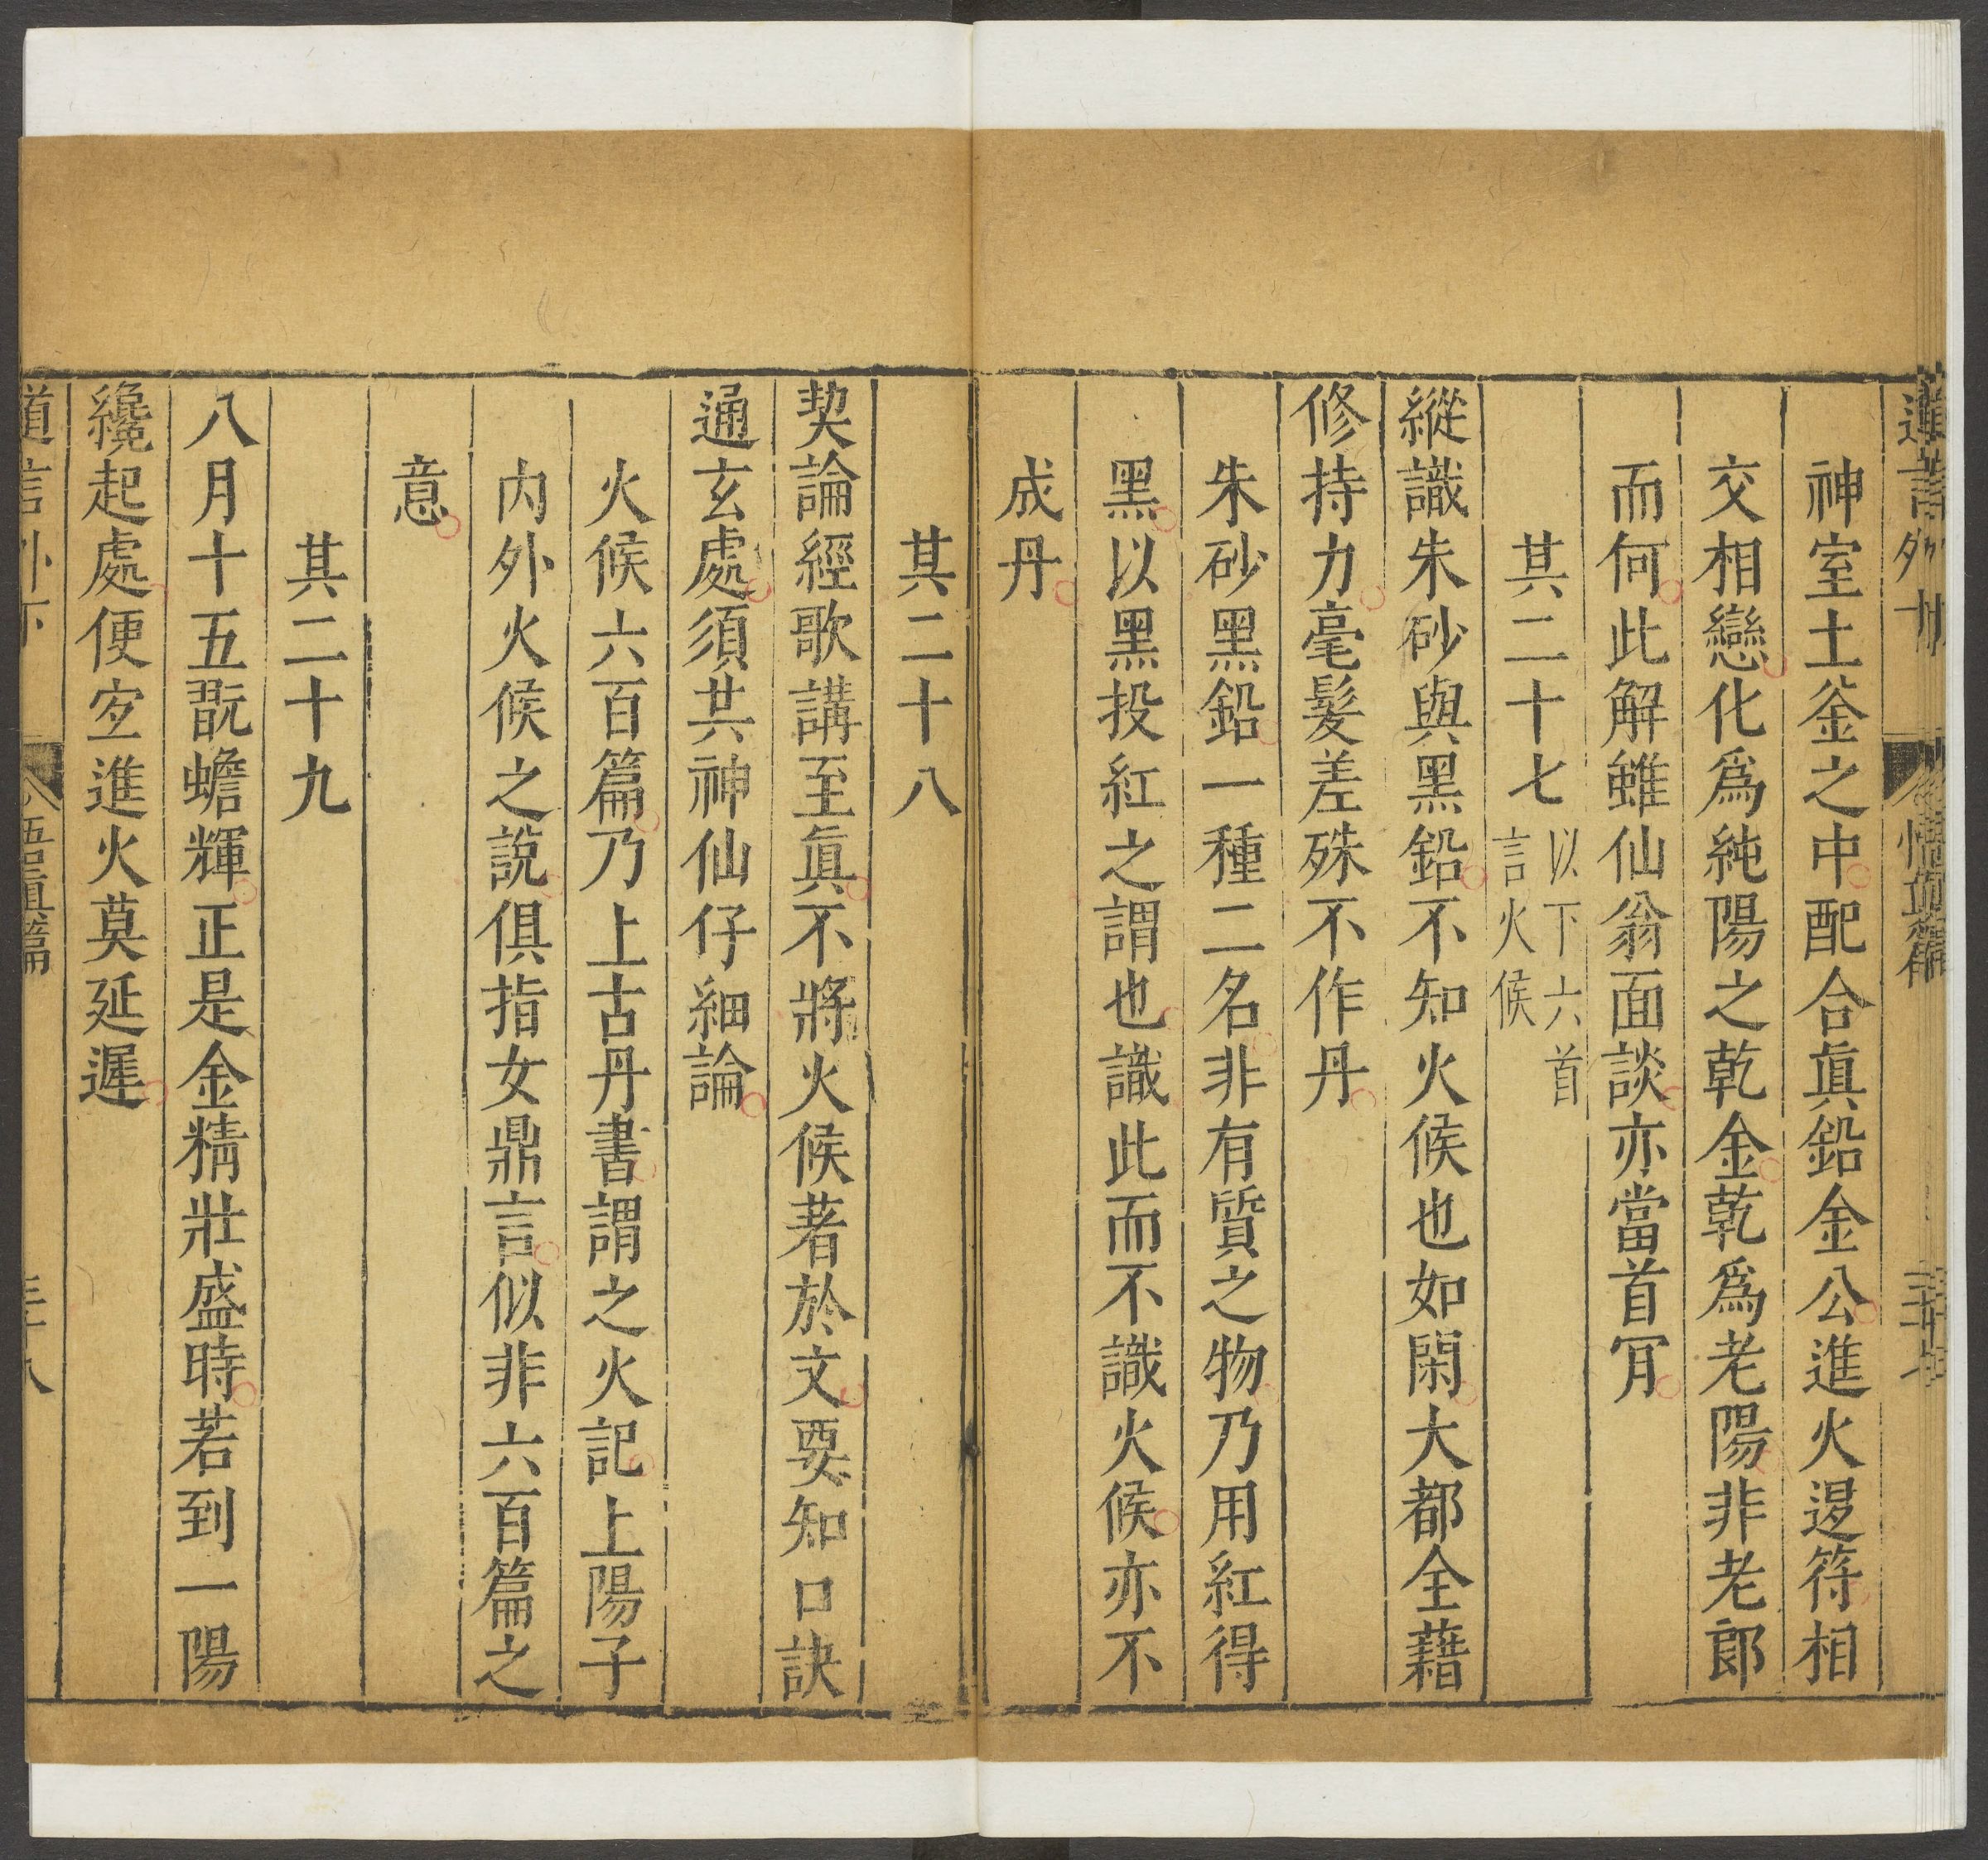 神室土釜之中配合真鉛金公進火退符相
交相戀化爲純陽之乾金乾爲老陽非老郎
而何此解雖仙翁面談亦當首肎
其二十七以下六首言火候
縱識朱砂與黑鉛不知火候也如閑大都全藉
修持力毫髮差殊不作丹
朱砂黑鉛一種二名非有質之物乃用紅得
黑以黑投紅之謂也識此而不識火候亦不
成丹
其二十八
契論經歌講至真不將火候著於文要知口訣
通玄處須共神仙仔細論
火候六百篇乃上古丹書謂之火記上陽子
內外火候之說俱指女鼎言似非六百篇之
意
其二十九
八月十五翫蟾輝正是金精壯盛時若到一陽
纔起處便宜進火莫延遲
道言外下 悟真篇 三十八